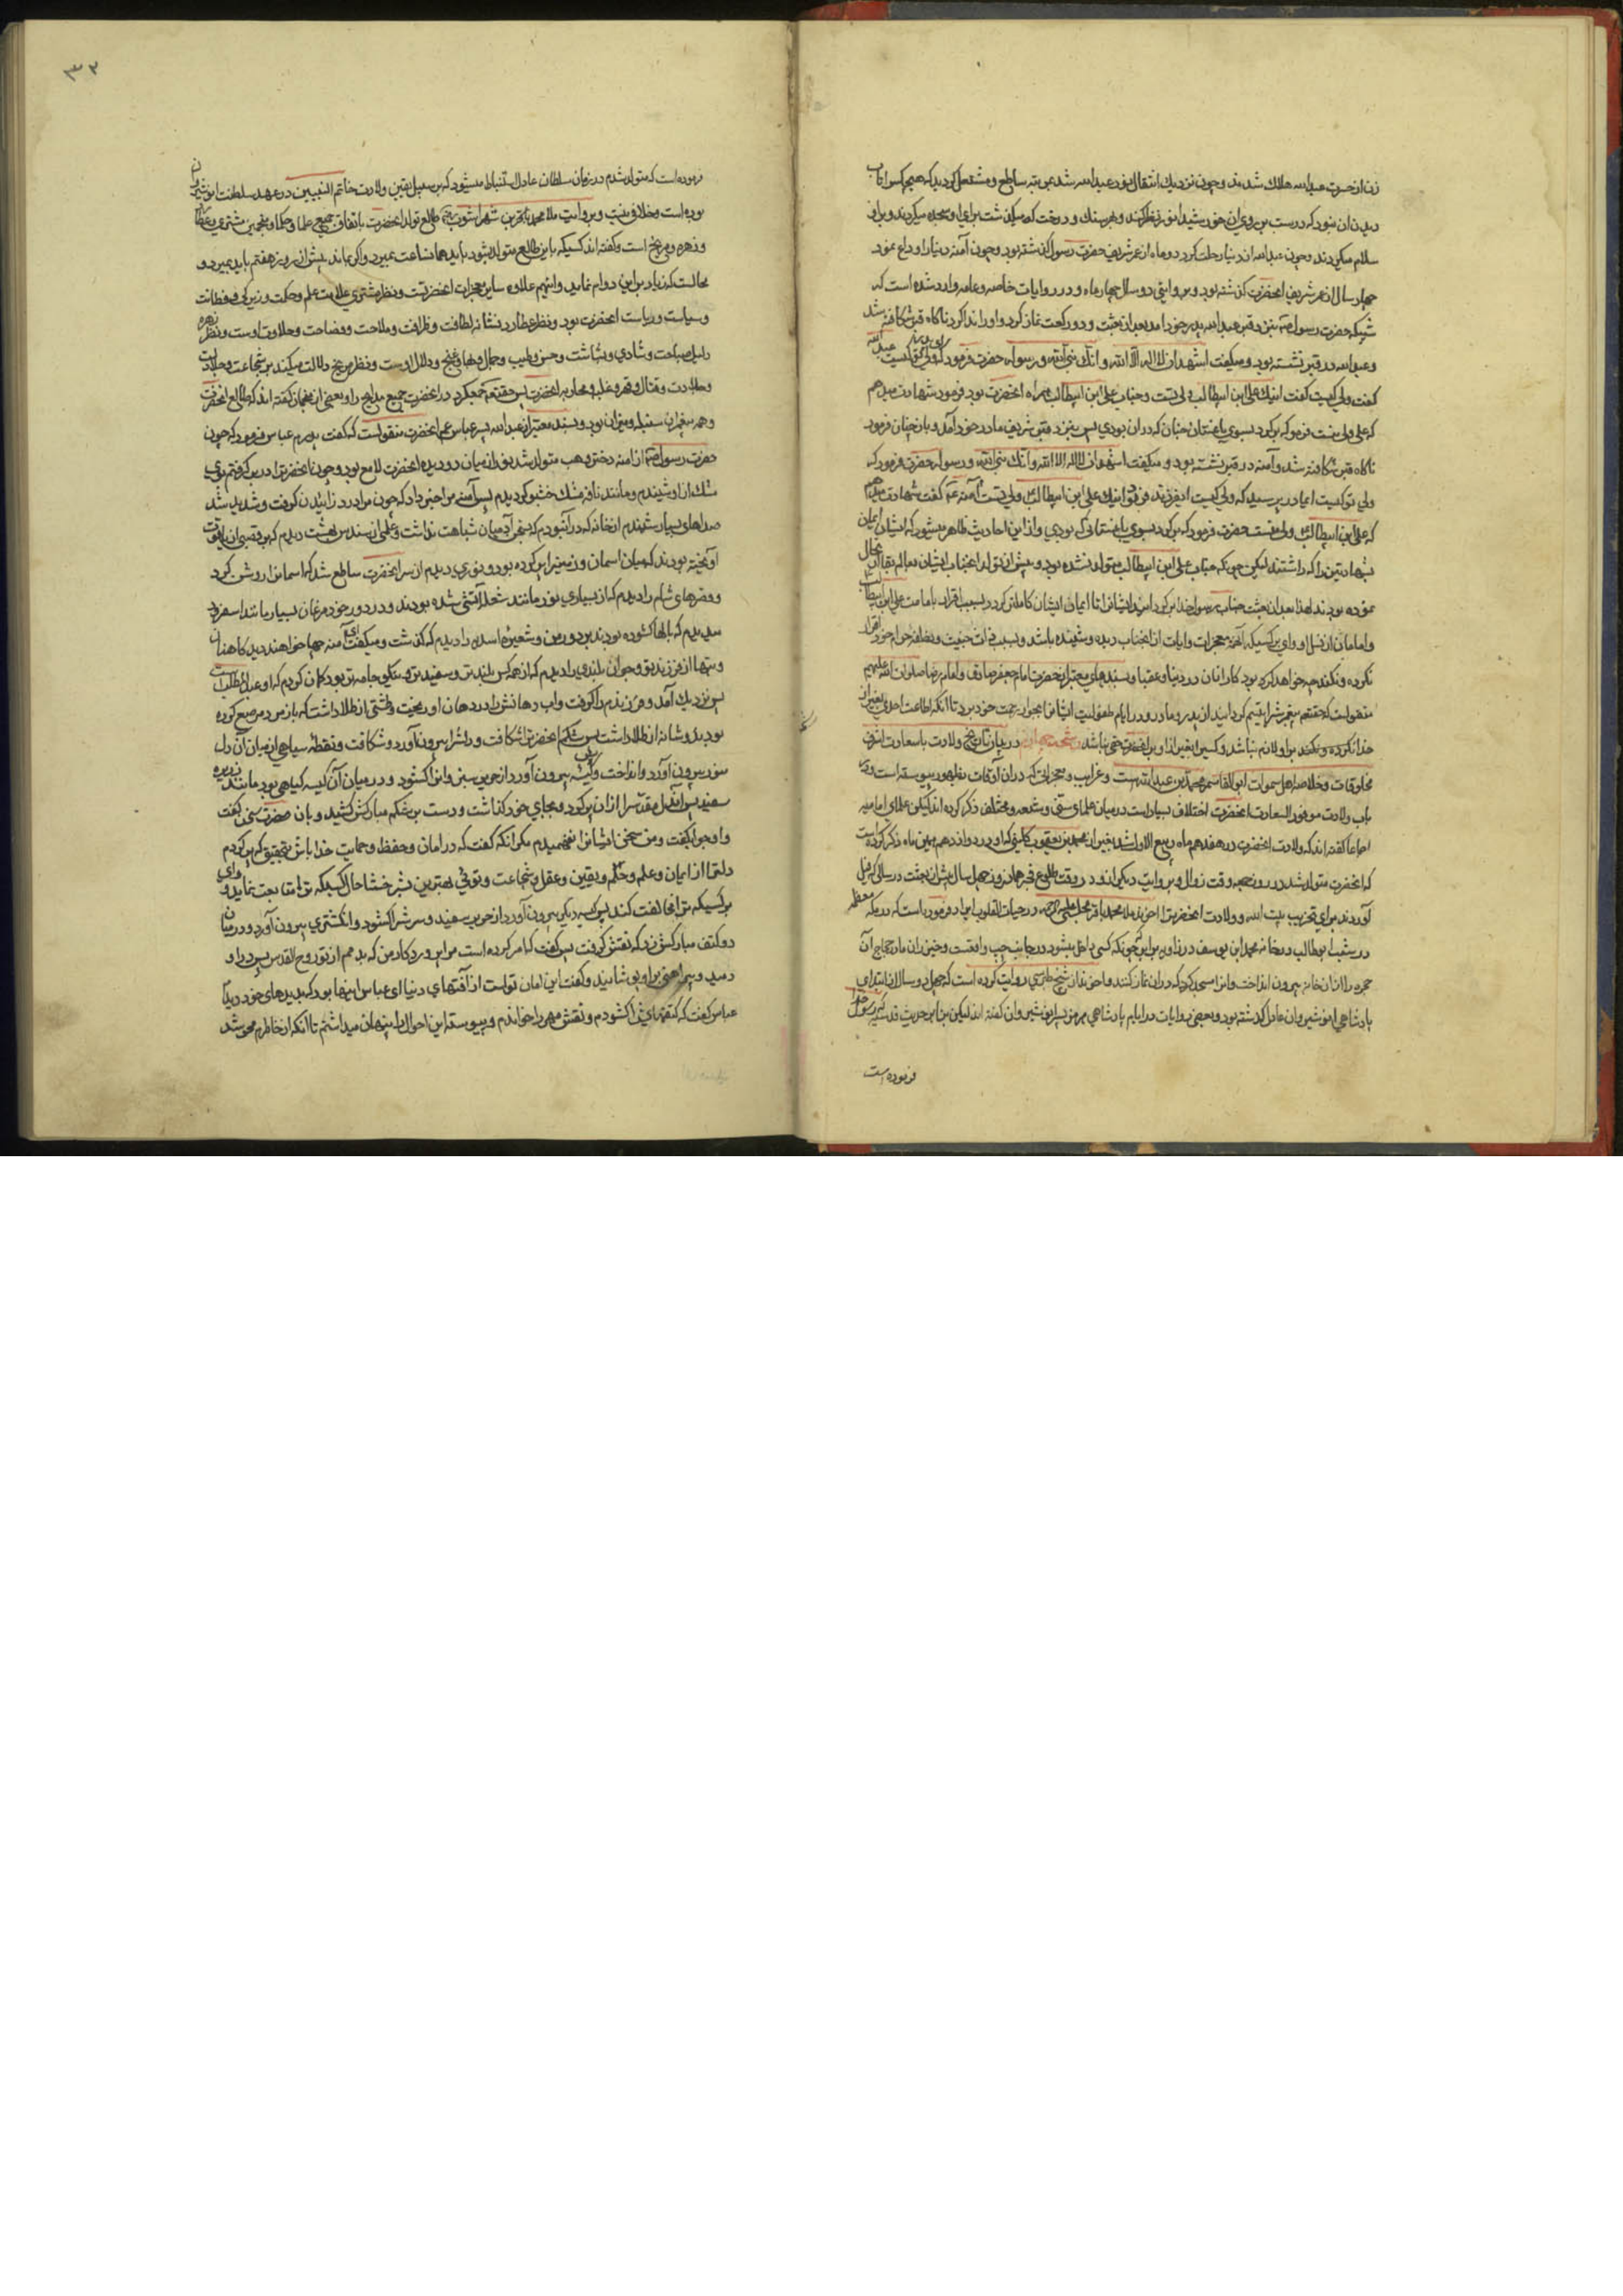 زن از حسرت عبدالله هلاك شدند و چون نزديك انتقال نور عبدالله شد بمرتبه ساطع و مشتعل گرديد كه هيچكس را تاب
ديدن آن نبود كه درست بر روي آن خورشيد انور نظر كند و بهر سنك و درخت كه ميگذشت براي او سجده ميكردند و بر او
سلام ميكردند و چون عبدالله از دنيا رحلت كرد دو ماه از عمر شريف حضرت رسول گذشته بود و چون آمنه دنيا را وداع نمود
چهار سال از عمر شريف انحضرت گذشته بود و بروايتي دو سال چهار ماه و در روايات خاصه و عامه وارد شده است كه
شبيكه حضرت رسول ص بنزد قبر عبدالله پدر خود آمد بعد از بعثت و دو ركعت نماز كرد و او را ندا كرد ناكاه قبر شكافته شد
و عبدالله در قبر نشسته بود و ميگفت اشهد ان لا اله الا الله و انك نبي الله و رسوله حضرت فرمود كه ولي تو كيست
گفت ولي كيست گفت اينك علي ابن ابيطالب ولي تست و جناب علي ابن ابيطالب همراه انحضرت بود فرمود شهادت ميدهم
كه علي ولي منست فرمود كه برگرد بسوي باغستان جنان كه در ان بودي پس بنزد قبر شريف مادر خود آمد و باز چنان فرمود
ناكاه قبر شكافته شد و آمنه در قبر نشسته بود و ميگفت اشهد ان لا اله الا الله و انك نبي الله و رسوله حضرت فرمود كه
ولي تو كيست اي مادر پرسيد كه ولي كيست اي فرزند فرمود اينك علي ابن ابيطالب ولي تست آمنه گفت شهادت ميدهم
كه علي ابن ابيطالب ولي منست حضرت فرمود كه برگرد بسوي باغستاني كه بودي و از اين احاديث ظاهر ميشود كه ايشان ايمان
بشهادتين را كه داشتند ليكن چونكه جناب علي ابن ابيطالب متولد نشده بود و پيش از تولد انجناب ايشان بعالم بقا انتقال
نموده بودند لهذا بعد از بعثت جناب رسول خدا برگردانيد ايشانرا تا ايمان ايشان كاملتر گردد بسبب اقرار بامامت علي ابن ابيطالب
و امامان از نسل او واي بر كسيكه آنهمه معجزات و ايات از انجناب ديده و شنيده باشد و بسبب ذات خبيث و نطفه حرام خود اقرار
نكرده و نكند چه خواهد كرد بود كار انان در دنيا و عقبا و بسندهاي معتبر از حضرت امام جعفر صادق و امام رضا صلوات الله عليهم
منقولست كه حقتعالي پيغمبرش را يتيم گردانيد از پدر و مادر و در ايام طفوليت ايشانرا بجوار رحمت خود برد تا آنكه اطاعت احدي بغير از
خدا نكرده و نكند بر او لازم نباشد و كسي را بغير از او بر انحضرت حقي نباشد رشحه چهارم در بيان تاريخ ولادت باسعادت اشرف
مخلوقات و خلاصه اهل سموات ابوالقاسم محمد بن عبدالله است و غرايب و معجزاتيكه در ان آوقات بظهور پيوسته است و در
باب ولادت موفور السعادت انحضرت اختلاف بسيار است در ميان علماي سني و شيعه و مختلف ذكر كرده اند ليكن علماي اماميه
اجماعا گفته اند كه ولادت انحضرت در هفدهم ماه ربيع الاول شد بغير از محمد بن يعقوب كليني كه او در دوازدهم همين ماه ذكر كرده است
كه انحضرت متولد شد در روز جمعه وقت زوال و بروايت ديگر او در وقت طلوع فجر همان روز چهل سال پيش از بعثت در سالي كه فيل
آوردند براي تخريب بيت الله و ولادت انحضرت را اخوند ملا محمد باقر مجلسي عليه الرحمه در حيات القلوب ايراد فرموده است كه در مكه معظمه
در شعب ابوطالب در خانه محمد ابن يوسف در زاويه برابر چونكه كسي داخل ميشود در جانب چپ واقعست و خيزران مادر حجاج آن
حجره را از ان خانه بيرون انداخت و انرا مسجد كرد كه در ان نماز كنند و اخوند از شيخ طبرسي روايت كرده است كه چهل و دو سال از ابتداي
پادشاهي انوشيروان عادل گذشته بود و بعضي روايات در ايام پادشاهي هرمز پسر انوشيروان گفته اند ليكن بنابر حديث قدسيه كه رسول خدا
فرموده است
۳۲
فرموده است كه متولد شدم در زمان سلطان عادل استنباط ميشود كه بر سبيل يقين ولادت خاتم النبيين در عهد سلطنت انوشيروان
بوده است و خلافي نيست و بروايت ملا محمد باقر بن شهر اشوب طالع تولد انحضرت باتفاق جميع علما و حكما و منجمين مشتري و عطارد
و زهره و مريخ است و گفته اند كسيكه باين طالع متولد شود بايد همانساعت بميرد و اگر بماند پيش از روز هفتم بايد بميرد و
محالست كه زياد بر اين دوام نمايد و اينهم علاوه ساير معجزات انحضرتست و نظر مشتري علامت علم و حكمت و زيركي و فطانت
و سياست و رياست انحضرت بود و نظر عطارد نشانه لطافت و ظرافت و ملاحت و فصاحت و حلاوت اوست و نظر زهره
دليل صباحت و شادي و بشاشت و حسن و طيب و جمال و بها و غنج و دلال اوست و نظر مريخ دلالت ميكند بر شجاعت و جلادت
و جلادت و قتال و قهر و غلبه و محاربه انحضرت پس حقتعالي جمع كرد در انحضرت جميع مدايح را و بعضي از منجمان گفته اند كه طالع انحضرت
و همه پيغمبران سنبله و ميزان بود و بسند معتبر از عبدالله پسر عباس عم انحضرت منقولست كه گفت پدرم عباس فرمود كه چون
حضرت رسول ص از آمنه دختر وهب متولد شد نور از ميان دو ديده انحضرت لامع بود و چون انحضرت را در بر گرفتم بوي
مشك از او شنيدم و مانند نافه مشك خشبو گرديدم پس آمنه مرا خبر داد كه چون مرا درد زائيدن گرفت و شديد شد
صداهاي بسيار شنيدم از خانه كه در آنبودم كه بسخن آدميان شباهت نداشت و علمي از سندس بهشت ديدم كه بر قصبي از ياقوت
آويخته بودند كه ميان اسمان و زمينرا پر كرده بود و نوري ديدم از سر انحضرت ساطع شد كه اسمانرا روشن كرد
و قصرهاي شام را ديدم كه از بسياري نور مانند شعله آتشي شده بودند و در دور خود مرغان بسيار مانند اسفرود
ميديدم كه بالها گشوده بودند بر دور من و شعيره اسديه را ديدم كه گذشت و ميگفت اي آمنه چها خواهند ديد كاهنان
و بتها از فرزند تو و جوان بلندي را ديدم كه از همه كس بلندتر و سفيدتر و نيكو جامه تر بود گمان كردم كه او عبدالمطلب است
پس نزديك آمد و فرزندم را گرفت و اب دهانش را در دهان او ريخت و طشتي از طلا داشت كه بازمرد مرصع كرده
بودند و شانه از طلا داشت پس شكم انحضرت را شكافت و دلش را بيرون آورد و شكافت و نقطه سياهي از ميان ان دل
منور بيرون آورد و انداخت و كيسه بيرون آورد از حرير سبز و انرا گشود و در ميان آن كيسه گياهي بود مانند زريره
سفيد پس آندل مقدس را از ان پر كرد و بجاي خود گذاشت و دست بر شكم مباركش كشيد و بان حضرت سخن گفت
و او جواب گفت و من سخن ايشانرا نفهميدم مگر انكه گفت كه در امان و حفظ و حمايت خدا باش بتحقيق كه پر كردم
دلت را از ايمان و علم و حلم و يقين و عقل و شجاعت و توئي بهترين بشر خوشا حال كسيكه ترا متابعت نمايد و واي
بر كسيكه ترا مخالفت كند پس كيسه ديگر بيرون آورد از حرير سفيد و سرش را گشود و انگشتري بيرون آورد و در ميان
دو كتف مباركش زد كه نقش گرفت پس گفت كه امر كرده است مرا پروردگار من كه بدمم از تو روح القدس پس در او
دميد و پيراهني بر او پوشانيد و گفت اين امان تواست از آفتهاي دنيا اي عباس اينها بود كه بديدهاي خود ديدم
عباس گفت كه كتفهايش را گشودم و نقش مهر را خواندم و پيوسته اين احوال را پنهان ميداشتم تا آنكه از خاطرم محو شد